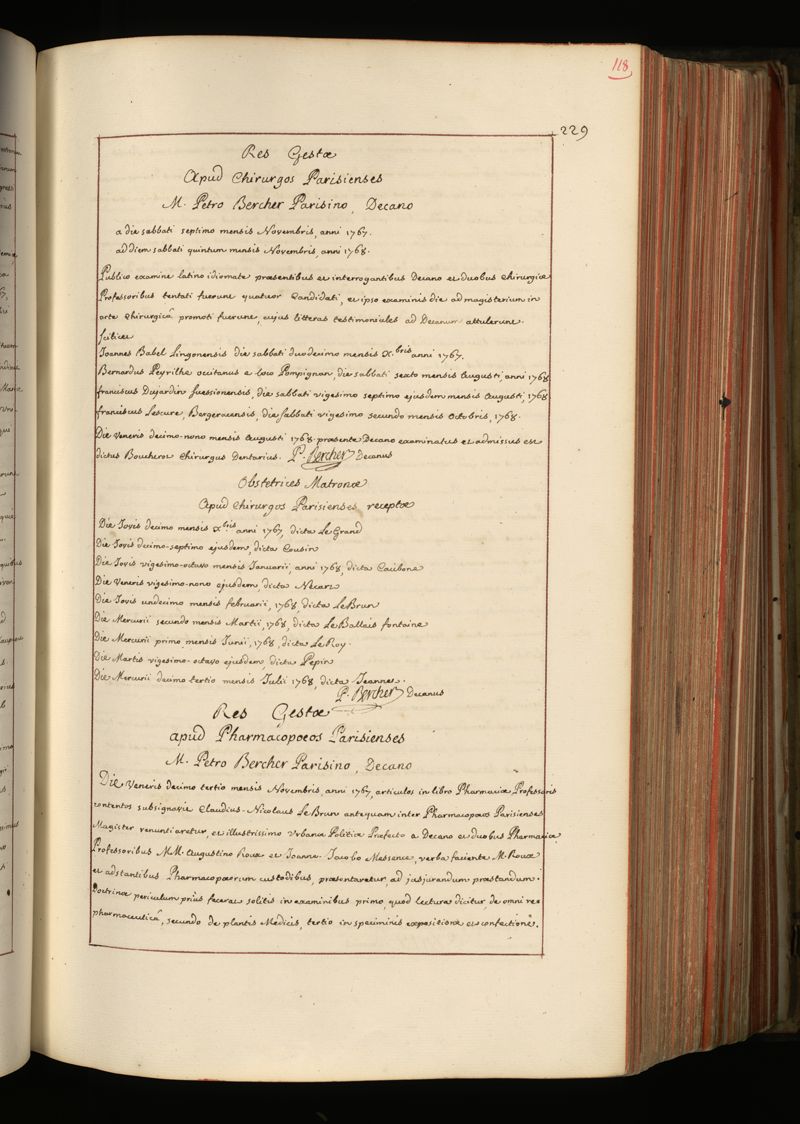 118
229
Res Gestæ
Apud Chirurgos Parisienses
M. Petro Bercher Parisino, Decano
a die sabbati septimo mensis Novembris, anni 1767.
ad diem sabbati quintum mensis Novembris, anni 1768.
Publico examine latino idiomate præsentibus et interrogantibus Decano et duobus Chirurgiæ
Professoribus tentati fuerunt quatuor Candidati, et ipso examinis die ad magisterium in
arte Chirurgicâ promoti fuerunt, cujus litteras testimoniales ad Decanum attulerunt.
scilicet
Joannes Babel Lingonensis die sabbati duodecimo mensis Xbris anni 1767.
Bernardus Peyrilhe occitanus e loco Pompignan, die sabbati sexto mensis Augusti, anni 1768
franciscus Dujardin suessionensis, die sabbati vigesimo septimo ejusdem mensis Augusti, 1768
franciscus Lescure, Bergeracensis, die sabbati vigesimo secundo mensis Octobris, 1768.
Die Veneris decimo-nono mensis Augusti 1768 præsente Decano examinatus et admissus est
dictus Boucherot Chirurgus Dentarius. P. Bercher Decanus
Obstetrices Matronæ
Apud Chirurgos Parisienses receptæ
Die Jovis decimo mensis Xbris anni 1767, dicta Le Grand
Die Jovis decimo-septimo ejusdem, dicta Cousin
Die Jovis vigesimo-octavo mensis Januarii, anni 1768, dicta
Die Veneris vigesimo-nono ejusdem, dicta
Die Jovis undecimo mensis februarii, 1768, dicta Le Brun
Die Mercurii secundo mensis Martii, 1768, dicta Le Ballais fontaine
Die Mercurii primo mensis Junii, 1768, dicta Le Roy.
Die Martis vigesimo-octavo ejusdem, dicta Pepin
Die Mercurii decimo tertio mensis Julii 1768, dicta Jeannet.
P. Bercher Decanus
Res Gestæ
apud Pharmacopoeos Parisienses
M. Petro Bercher Parisino, Decano
Die Veneris decimo tertio mensis Novembris, anni 1767, articulos in libro Pharmaciæ Professoris
contentos subsignavit Claudius-Nicolaus Le Brun antequam inter Pharmacopoeos Parisienses
Magister renuntiaretur, et illustrissimo Urbanæ Politiæ Præfecto a Decano et duobus Pharmaciæ
Professoribus M.M. Augustino Roux et Joanne-Jacobo Messence, verba faciente M. Roux
et adstantibus Pharmacopæorum custodibus, præsentaretur, ad jusjurandum præstandum.
Doctrinæ periculum prius fecerat solitis in examinibus primo, quod lectura dicitur, de omni re
pharmaceuticâ, secundo de plantis Medicis, tertio in speciminis expositione et confectione.